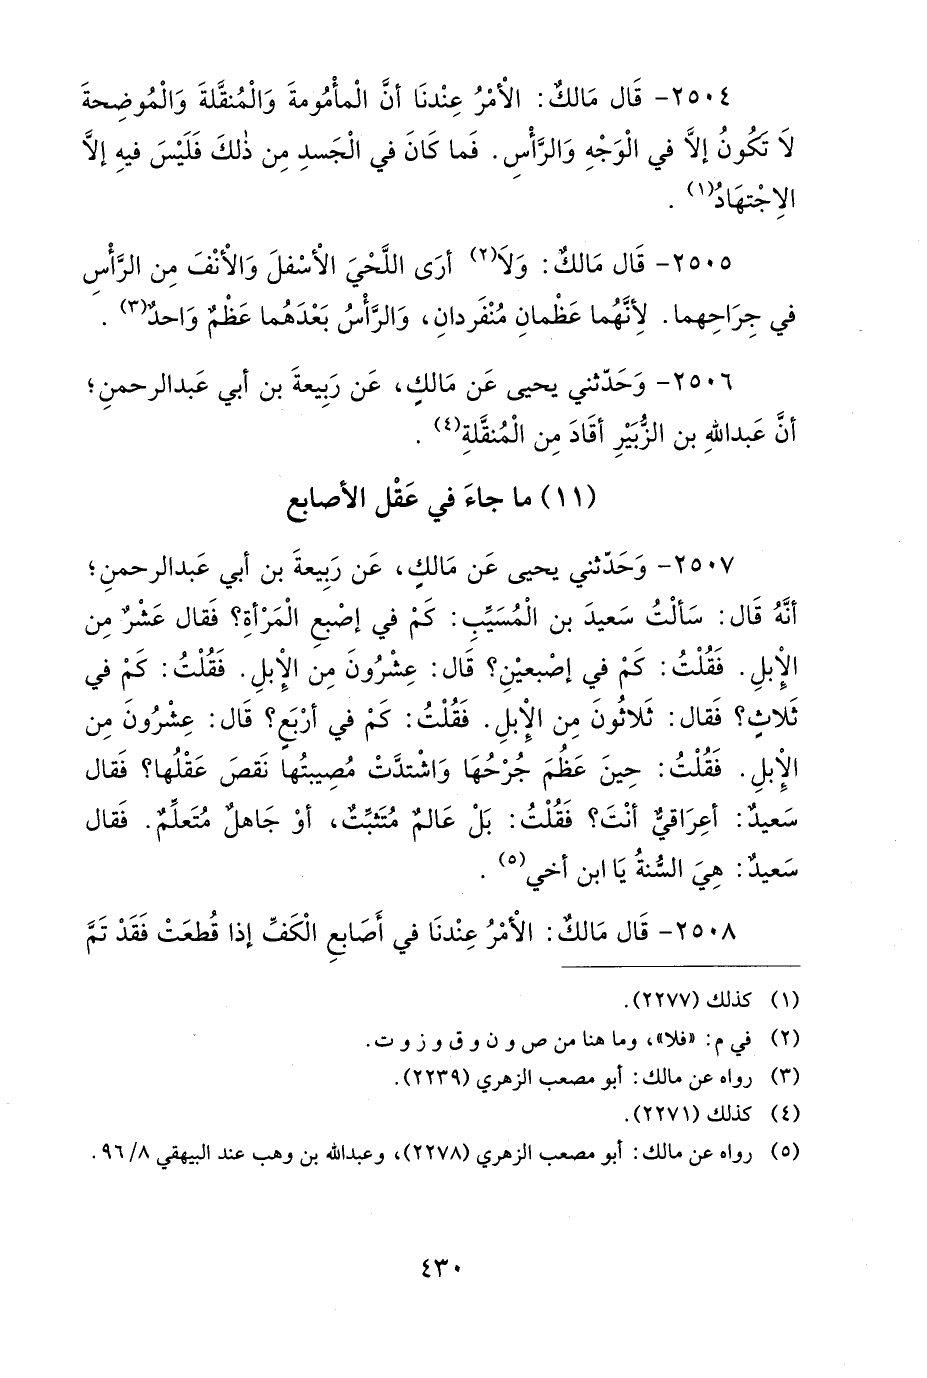 ٢٥٠٤- قَال مَالكٌ: الْأمْرُ عِنْدنَا أنَّ الْمأْمُومةَ وَالْمُنقَّلةَ وَالْمُوضِحةَ
لاَ تَكُونُ إلاَّ في الْوَجْهِ وَالرَّأْسِ. فَما كَانَ في الْجَسدِ مِن ذٰلكَ فَلَيْسَ فيهِ إلاَّ
الِاجْتهَادُ(١) .
٢٥٠٥- قَال مَالكٌ: وَلاَ(٢) أرَى اللَّحْيَ الْأسْفلَ وَالْأنْفَ مِن الرَّأْسِ
في جِرَاحِهما. لِأنَّهُما عَظْمانِ مُنْفَردانِ، وَالرَّأْسُ بَعْدَهُما عَظْمٌ وَاحدٌ(٣) .
٢٥٠٦- وَحَدّثني يحيى عَن مَالكٍ، عَن رَبِيعةَ بن أبي عَبدالرحمنِ؛
أنَّ عَبداللهِ بن الزُّبَيْرِ أقَادَ مِن الْمُنقَّلةِ(٤) .
(١١) ما جاءَ في عَقْل الأصابع
٢٥٠٧- وَحَدّثني يحيى عَن مَالكٍ، عَن رَبِيعةَ بن أبي عَبدالرحمنِ؛
أنَّهُ قَال: سَألْتُ سَعيدَ بن الْمُسَيِّبِ: كَمْ في إصْبعِ الْمَرْأةِ؟ فَقال عَشْرٌ مِن
الْإبلِ. فَقُلْتُ: كَمْ في إصْبعيْنِ؟ قَال: عِشْرُونَ مِن الْإبلِ. فَقُلْتُ: كَمْ في
ثَلاثٍ؟ فَقال: ثَلاثُونَ مِن الْإبلِ. فَقُلْتُ: كَمْ في أرْبَعٍ؟ قَال: عِشْرُونَ مِن
الْإبلِ. فَقُلْتُ: حِينَ عَظُمَ جُرْحُهَا وَاشْتدَّتْ مُصِيبتُها نَقصَ عَقْلُها؟ فَقال
سَعيدٌ: أعِرَاقيٌّ أنْتَ؟ فَقُلْتُ: بَلْ عَالمٌ مُتَثبِّتٌ، أوْ جَاهلٌ مُتَعلِّمٌ. فَقال
سَعيدٌ: هِيَ السُّنةُ يَا ابن أخي(٥) .
٢٥٠٨- قَال مَالكٌ: الْأمْرُ عِنْدنَا في أَصَابعِ الْكَفِّ إذا قُطعَتْ فَقَدْ تَمَّ
(١) كذلك (٢٢٧٧).
(٢) في م: «فلا»، وما هنا من ص و ن و ق و ز و ت.
(٣) رواه عن مالك: أبو مصعب الزهري (٢٢٣٩).
(٤) كذلك (٢٢٧١).
(٥) رواه عن مالك: أبو مصعب الزهري (٢٢٧٨)، وعبدالله بن وهب عند البيهقي ٩٦/٨.
٤٣٠